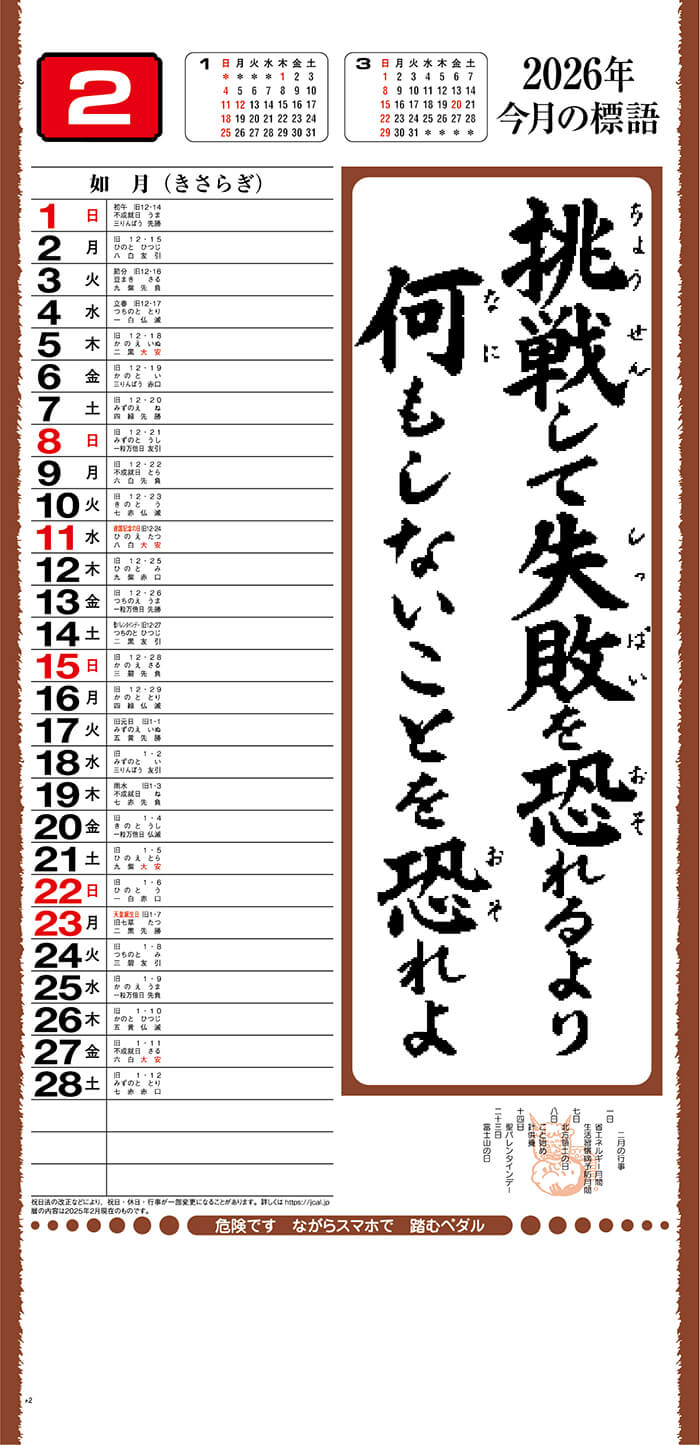 2
1
日 月 火 水 木 金 土
* * * * 1 2 3
4 5 6 7 8 9 10
11 12 13 14 15 16 17
18 19 20 21 22 23 24
25 26 27 28 29 30 31
3
日 月 火 水 木 金 土
1 2 3 4 5 6 7
8 9 10 11 12 13 14
15 16 17 18 19 20 21
22 23 24 25 26 27 28
29 30 31 * * * *
2026年
今月の標語
如 月（きさらぎ）
1 日 初午 旧12・14
不成就日 うま
三りんぼう 先勝
2 月 旧 12・15
ひのと ひつじ
八白 友引
3 火 節分 旧12・16
豆まき さる
九紫 先負
4 水 立春 旧12・17
つちのと とり
一白 仏滅
5 木 旧 12・18
かのえ いぬ
二黒 大安
6 金 旧 12・19
かのと い
三りんぼう 赤口
7 土 旧 12・20
みずのえ ね
四緑 先勝
8 日 旧 12・21
みずのと うし
一粒万倍日 友引
9 月 旧 12・22
不成就日 とら
六白 先負
10 火 旧 12・23
きのと う
七赤 仏滅
11 水 建国記念の日 旧12・24
ひのえ たつ
八白 大安
12 木 旧 12・25
ひのと み
九紫 赤口
13 金 旧 12・26
つちのえ うま
一粒万倍日 先勝
14 土 聖バレンタインデー 旧12・27
つちのと ひつじ
二黒 友引
15 日 旧 12・28
かのえ さる
三碧 先負
16 月 旧 12・29
かのと とり
四緑 仏滅
17 火 旧元日 旧1・1
みずのえ いぬ
五黄 先勝
18 水 旧 1・2
みずのと い
三りんぼう 友引
19 木 雨水 旧1・3
不成就日 ね
七赤 先負
20 金 旧 1・4
きのと うし
一粒万倍日 仏滅
21 土 旧 1・5
ひのえ とら
九紫 大安
22 日 旧 1・6
ひのと う
一白 赤口
23 月 天皇誕生日 旧1・7
旧七草 たつ
二黒 先勝
24 火 旧 1・8
つちのと み
三碧 友引
25 水 旧 1・9
かのえ うま
一粒万倍日 先負
26 木 旧 1・10
かのと ひつじ
五黄 仏滅
27 金 旧 1・11
不成就日 さる
六白 大安
28 土 旧 1・12
みずのと とり
七赤 赤口
挑戦して失敗を恐れるより
ちょうせん しっぱい おそ
何もしないことを恐れよ
なに おそ
二月の行事
一日
省エネルギー月間
生活習慣病予防月間
七日
北方領土の日
八日
こと始め
針供養
十四日
聖バレンタインデー
二十三日
富士山の日
祝日法の改正などにより、祝日・休日・行事が一部変更になることがあります。詳しくは https://jcal.jp
暦の内容は2025年2月現在のものです。
危険です ながらスマホで 踏むペダル